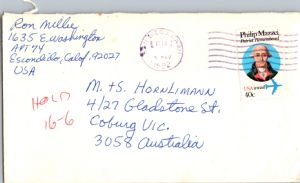 Ron Millie
1635 E. Washington
APT 74
Escondido, Calif, 92027
USA
Philip Mazzei
Patriot Remembered
USAirmail
40c
HOLD
16-6
M. + S. HORNLIMANN
4/27 Gladstone St.
Coburg Vic.
3058 Australia